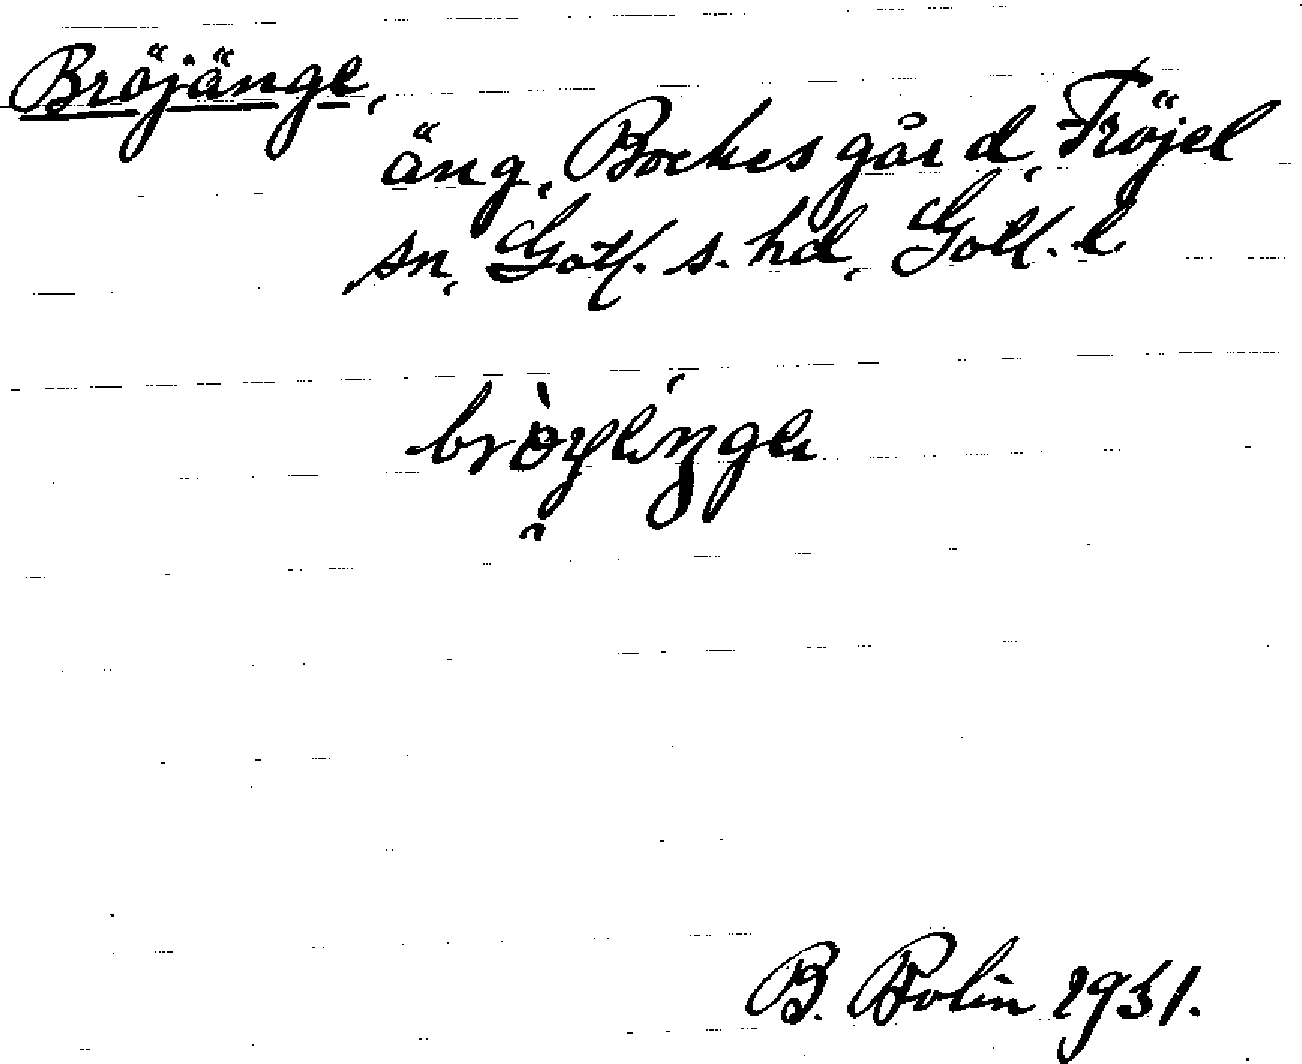 Bröjänge,
äng, Bockes gård, Fröjel
sn, Gotl. s. hd, Gotl. l
B. Bolin 1931.